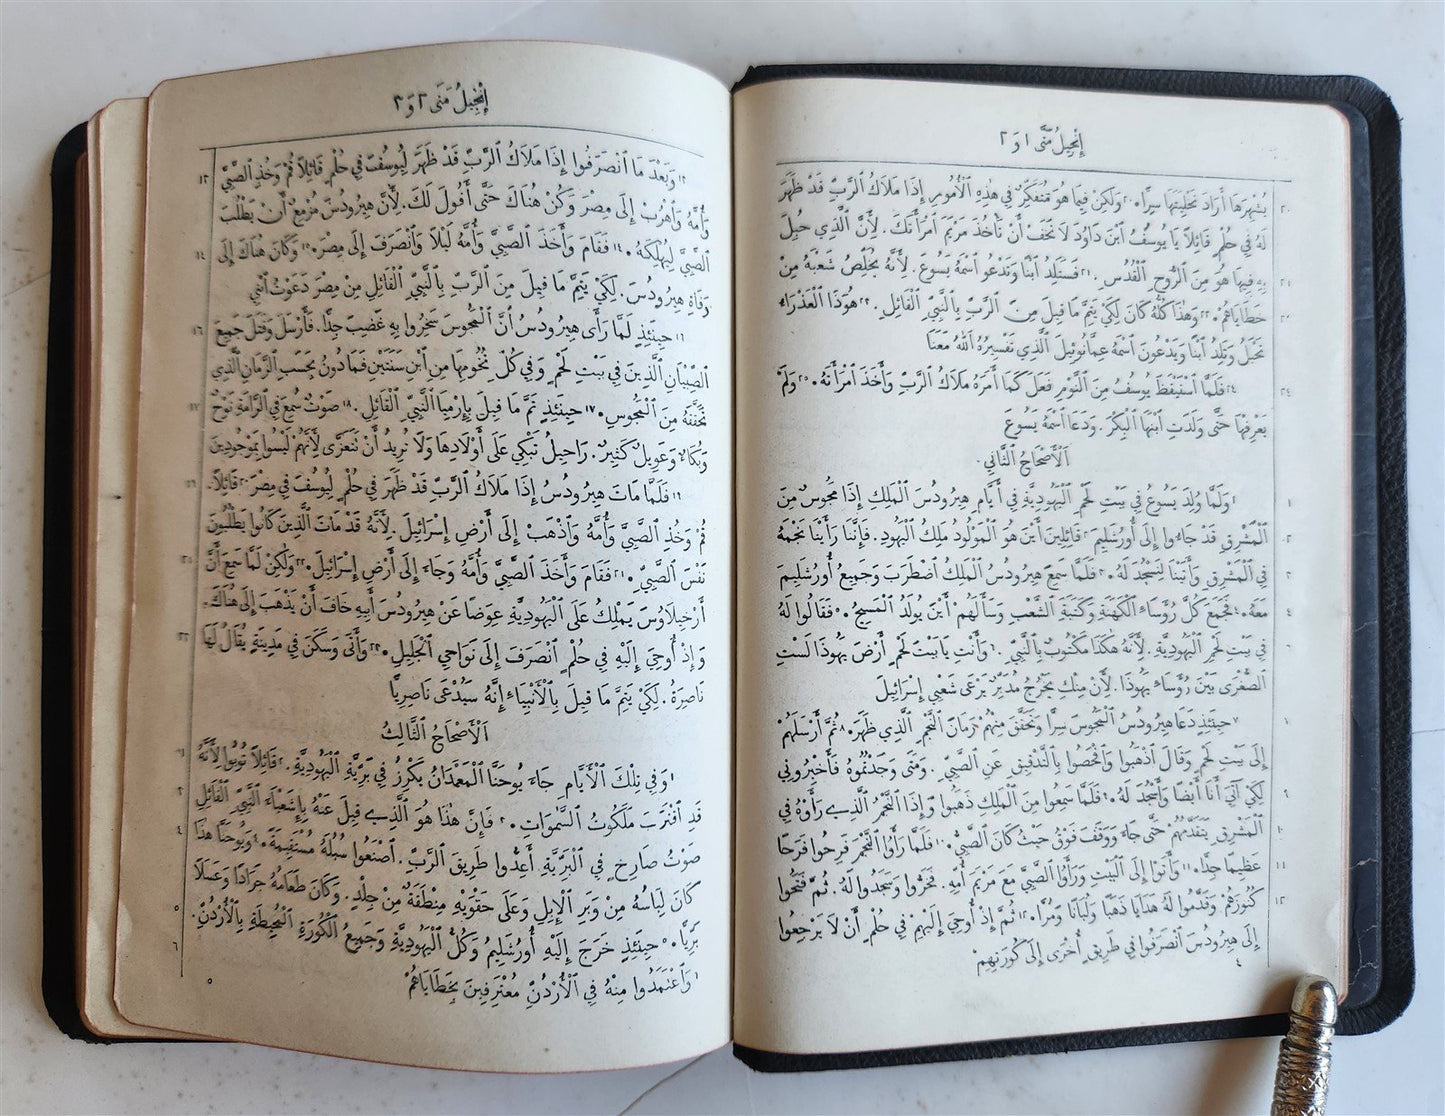 إِنْجِيلُ مَتَّى ١ و ٢
يُشْهِرَهَا أَرَادَ تَخْلِيَتَهَا سِرًّا. ٢٠ وَلٰكِنْ فِيمَا هُوَ مُتَفَكِّرٌ فِي هٰذِهِ ٱلْأُمُورِ إِذَا مَلَاكُ ٱلرَّبِّ قَدْ ظَهَرَ
لَهُ فِي حُلْمٍ قَائِلًا يَا يُوسُفُ ٱبْنَ دَاوُدَ لَا تَخَفْ أَنْ تَأْخُذَ مَرْيَمَ ٱمْرَأَتَكَ. لِأَنَّ ٱلَّذِي حُبِلَ
بِهِ فِيهَا هُوَ مِنَ ٱلرُّوحِ ٱلْقُدُسِ. ٢١ فَسَتَلِدُ ٱبْنًا وَتَدْعُو ٱسْمَهُ يَسُوعَ. لِأَنَّهُ يُخَلِّصُ شَعْبَهُ مِنْ
خَطَايَاهُمْ. ٢٢ وَهٰذَا كُلُّهُ كَانَ لِكَيْ يَتِمَّ مَا قِيلَ مِنَ ٱلرَّبِّ بِٱلنَّبِيِّ ٱلْقَائِلِ. ٢٣ هُوَذَا ٱلْعَذْرَاءُ
تَحْبَلُ وَتَلِدُ ٱبْنًا وَيَدْعُونَ ٱسْمَهُ عِمَّانُوئِيلَ ٱلَّذِي تَفْسِيرُهُ ٱللهُ مَعَنَا
٢٤ فَلَمَّا ٱسْتَيْقَظَ يُوسُفُ مِنَ ٱلنَّوْمِ فَعَلَ كَمَا أَمَرَهُ مَلَاكُ ٱلرَّبِّ وَأَخَذَ ٱمْرَأَتَهُ. ٢٥ وَلَمْ
يَعْرِفْهَا حَتَّى وَلَدَتِ ٱبْنَهَا ٱلْبِكْرَ. وَدَعَا ٱسْمَهُ يَسُوعَ
اَلْأَصْحَاحُ ٱلثَّانِي.
١ وَلَمَّا وُلِدَ يَسُوعُ فِي بَيْتِ لَحْمِ ٱلْيَهُودِيَّةِ فِي أَيَّامِ هِيرُودُسَ ٱلْمَلِكِ إِذَا مَجُوسٌ مِنَ
ٱلْمَشْرِقِ قَدْ جَاءُوا إِلَى أُورُشَلِيمَ ٢ قَائِلِينَ أَيْنَ هُوَ ٱلْمَوْلُودُ مَلِكُ ٱلْيَهُودِ. فَإِنَّنَا رَأَيْنَا نَجْمَهُ
فِي ٱلْمَشْرِقِ وَأَتَيْنَا لِنَسْجُدَ لَهُ. ٣ فَلَمَّا سَمِعَ هِيرُودُسُ ٱلْمَلِكُ ٱضْطَرَبَ وَجَمِيعُ أُورُشَلِيمَ
مَعَهُ. ٤ فَجَمَعَ كُلَّ رُؤَسَاءِ ٱلْكَهَنَةِ وَكَتَبَةِ ٱلشَّعْبِ وَسَأَلَهُمْ أَيْنَ يُولَدُ ٱلْمَسِيحُ. ٥ فَقَالُوا لَهُ
فِي بَيْتِ لَحْمِ ٱلْيَهُودِيَّةِ. لِأَنَّهُ هٰكَذَا مَكْتُوبٌ بِٱلنَّبِيِّ. ٦ وَأَنْتِ يَا بَيْتَ لَحْمٍ أَرْضَ يَهُوذَا لَسْتِ
ٱلصُّغْرَى بَيْنَ رُؤَسَاءِ يَهُوذَا. لِأَنْ مِنْكِ يَخْرُجُ مُدَبِّرٌ يَرْعَى شَعْبِي إِسْرَائِيلَ
٧ حِينَئِذٍ دَعَا هِيرُودُسُ ٱلْمَجُوسَ سِرًّا وَتَحَقَّقَ مِنْهُمْ زَمَانَ ٱلنَّجْمِ ٱلَّذِي ظَهَرَ. ٨ ثُمَّ أَرْسَلَهُمْ
إِلَى بَيْتِ لَحْمٍ وَقَالَ ٱذْهَبُوا وَٱفْحَصُوا بِٱلتَّدْقِيقِ عَنِ ٱلصَّبِيِّ. وَمَتَى وَجَدْتُمُوهُ فَأَخْبِرُونِي
لِكَيْ آتِيَ أَنَا أَيْضًا وَأَسْجُدَ لَهُ. ٩ فَلَمَّا سَمِعُوا مِنَ ٱلْمَلِكِ ذَهَبُوا وَإِذَا ٱلنَّجْمُ ٱلَّذِي رَأَوْهُ فِي
ٱلْمَشْرِقِ يَتَقَدَّمُهُمْ حَتَّى جَاءَ وَوَقَفَ فَوْقُ حَيْثُ كَانَ ٱلصَّبِيُّ. ١٠ فَلَمَّا رَأَوُا ٱلنَّجْمَ فَرِحُوا فَرَحًا
عَظِيمًا جِدًّا. ١١ وَأَتَوْا إِلَى ٱلْبَيْتِ وَرَأَوُا ٱلصَّبِيَّ مَعَ مَرْيَمَ أُمِّهِ. فَخَرُّوا وَسَجَدُوا لَهُ. ثُمَّ فَتَحُوا
كُنُوزَهُمْ وَقَدَّمُوا لَهُ هَدَايَا ذَهَبًا وَلُبَانًا وَمُرًّا. ١٢ ثُمَّ إِذْ أُوحِيَ إِلَيْهِمْ فِي حُلْمٍ أَنْ لَا يَرْجِعُوا
إِلَى هِيرُودُسَ ٱنْصَرَفُوا فِي طَرِيقٍ أُخْرَى إِلَى كُورَتِهِمْ
٤
إِنْجِيلُ مَتَّى ٢ و ٣
١٣ وَبَعْدَ مَا ٱنْصَرَفُوا إِذَا مَلَاكُ ٱلرَّبِّ قَدْ ظَهَرَ لِيُوسُفَ فِي حُلْمٍ قَائِلًا قُمْ وَخُذِ ٱلصَّبِيَّ
وَأُمَّهُ وَٱهْرُبْ إِلَى مِصْرَ وَكُنْ هُنَاكَ حَتَّى أَقُولَ لَكَ. لِأَنَّ هِيرُودُسَ مُزْمِعٌ أَنْ يَطْلُبَ
ٱلصَّبِيَّ لِيُهْلِكَهُ. ١٤ فَقَامَ وَأَخَذَ ٱلصَّبِيَّ وَأُمَّهُ لَيْلًا وَٱنْصَرَفَ إِلَى مِصْرَ. ١٥ وَكَانَ هُنَاكَ إِلَى
وَفَاةِ هِيرُودُسَ. لِكَيْ يَتِمَّ مَا قِيلَ مِنَ ٱلرَّبِّ بِٱلنَّبِيِّ ٱلْقَائِلِ مِنْ مِصْرَ دَعَوْتُ ٱبْنِي
١٦ حِينَئِذٍ لَمَّا رَأَى هِيرُودُسُ أَنَّ ٱلْمَجُوسَ سَخِرُوا بِهِ غَضِبَ جِدًّا. فَأَرْسَلَ وَقَتَلَ جَمِيعَ
ٱلصِّبْيَانِ ٱلَّذِينَ فِي بَيْتِ لَحْمٍ وَفِي كُلِّ تُخُومِهَا مِنِ ٱبْنِ سَنَتَيْنِ فَمَا دُونُ بِحَسَبِ ٱلزَّمَانِ ٱلَّذِي
تَحَقَّقَهُ مِنَ ٱلْمَجُوسِ. ١٧ حِينَئِذٍ تَمَّ مَا قِيلَ بِإِرْمِيَا ٱلنَّبِيِّ ٱلْقَائِلِ. ١٨ صَوْتٌ سُمِعَ فِي ٱلرَّامَةِ نَوْحٌ
وَبُكَاءٌ وَعَوِيلٌ كَثِيرٌ. رَاحِيلُ تَبْكِي عَلَى أَوْلَادِهَا وَلَا تُرِيدُ أَنْ تَتَعَزَّى لِأَنَّهُمْ لَيْسُوا بِمَوْجُودِينَ
١٩ فَلَمَّا مَاتَ هِيرُودُسُ إِذَا مَلَاكُ ٱلرَّبِّ قَدْ ظَهَرَ فِي حُلْمٍ لِيُوسُفَ فِي مِصْرَ ٢٠ قَائِلًا.
قُمْ وَخُذِ ٱلصَّبِيَّ وَأُمَّهُ وَٱذْهَبْ إِلَى أَرْضِ إِسْرَائِيلَ. لِأَنَّهُ قَدْ مَاتَ ٱلَّذِينَ كَانُوا يَطْلُبُونَ
نَفْسَ ٱلصَّبِيِّ. ٢١ فَقَامَ وَأَخَذَ ٱلصَّبِيَّ وَأُمَّهُ وَجَاءَ إِلَى أَرْضِ إِسْرَائِيلَ. ٢٢ وَلٰكِنْ لَمَّا سَمِعَ أَنَّ
أَرْخِيلَاوُسَ يَمْلِكُ عَلَى ٱلْيَهُودِيَّةِ عِوَضًا عَنْ هِيرُودُسَ أَبِيهِ خَافَ أَنْ يَذْهَبَ إِلَى هُنَاكَ.
وَإِذْ أُوحِيَ إِلَيْهِ فِي حُلْمٍ ٱنْصَرَفَ إِلَى نَوَاحِي ٱلْجَلِيلِ. ٢٣ وَأَتَى وَسَكَنَ فِي مَدِينَةٍ يُقَالُ لَهَا
نَاصِرَةُ. لِكَيْ يَتِمَّ مَا قِيلَ بِٱلْأَنْبِيَاءِ إِنَّهُ سَيُدْعَى نَاصِرِيًّا
اَلْأَصْحَاحُ ٱلثَّالِثُ
١ وَفِي تِلْكَ ٱلْأَيَّامِ جَاءَ يُوحَنَّا ٱلْمَعْمَدَانُ يَكْرِزُ فِي بَرِّيَّةِ ٱلْيَهُودِيَّةِ. ٢ قَائِلًا تُوبُوا لِأَنَّهُ
قَدِ ٱقْتَرَبَ مَلَكُوتُ ٱلسَّمٰوَاتِ. ٣ فَإِنَّ هٰذَا هُوَ ٱلَّذِي قِيلَ عَنْهُ بِإِشَعْيَاءَ ٱلنَّبِيِّ ٱلْقَائِلِ
صَوْتُ صَارِخٍ فِي ٱلْبَرِّيَّةِ أَعِدُّوا طَرِيقَ ٱلرَّبِّ. ٱصْنَعُوا سُبُلَهُ مُسْتَقِيمَةً. ٤ وَيُوحَنَّا هٰذَا
كَانَ لِبَاسُهُ مِنْ وَبَرِ ٱلْإِبِلِ وَعَلَى حَقْوَيْهِ مِنْطَقَةٌ مِنْ جِلْدٍ. وَكَانَ طَعَامُهُ جَرَادًا وَعَسَلًا
بَرِّيًّا. ٥ حِينَئِذٍ خَرَجَ إِلَيْهِ أُورُشَلِيمُ وَكُلُّ ٱلْيَهُودِيَّةِ وَجَمِيعُ ٱلْكُورَةِ ٱلْمُحِيطَةِ بِٱلْأُرْدُنِّ.
٦ وَٱعْتَمَدُوا مِنْهُ فِي ٱلْأُرْدُنِّ مُعْتَرِفِينَ بِخَطَايَاهُمْ
٥